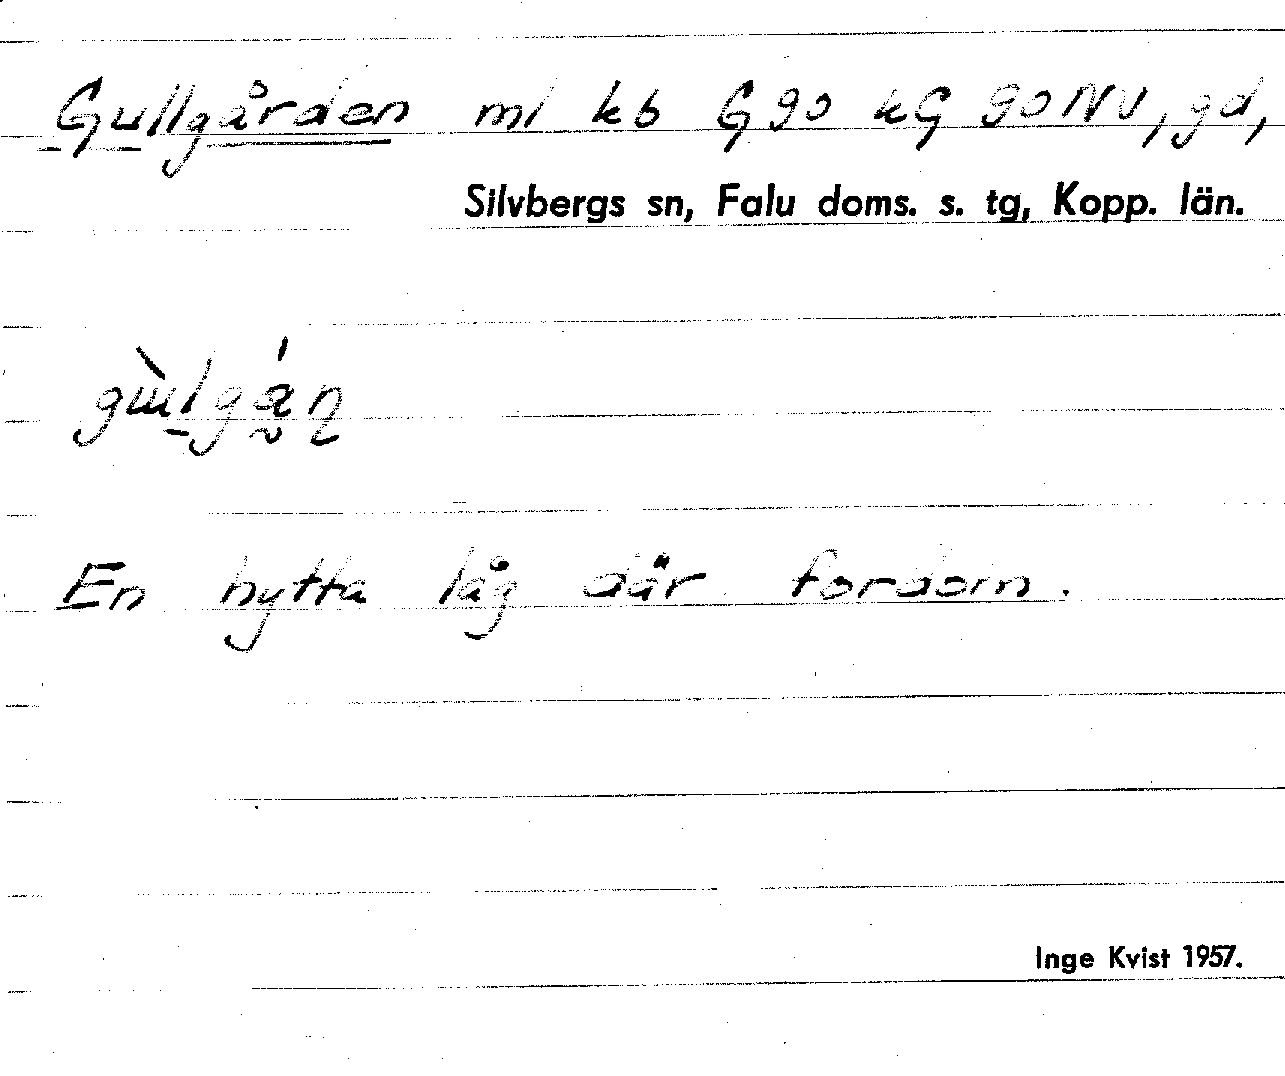 Gullgården ml kb G 90 kG 90 NV, gd,
Silvbergs sn, Falu doms. s. tg, Kopp. län.
En hytta låg där fordom.
Inge Kvist 1957.